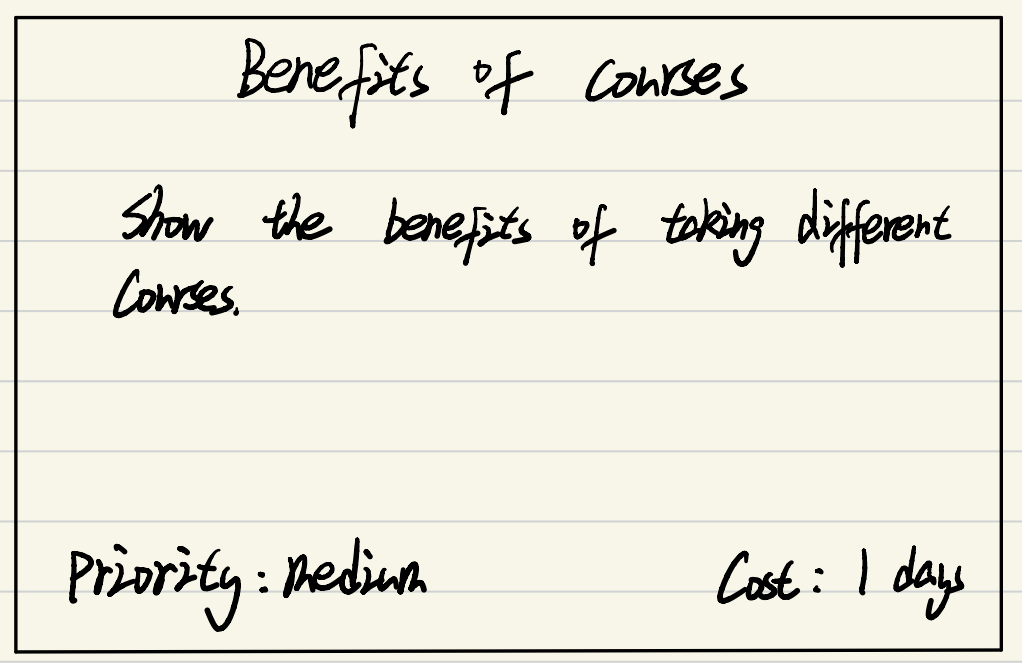 Benefits of courses
Show the benefits of taking different
Courses.
Priority: medium
Cost: 1 days